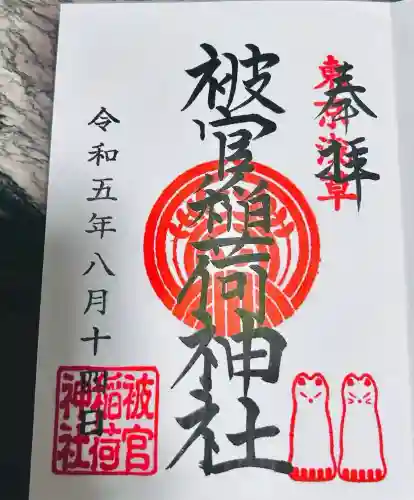 奉拝
東京浅草
被官稲荷神社
令和五年八月十四日
被官
稲荷
神社